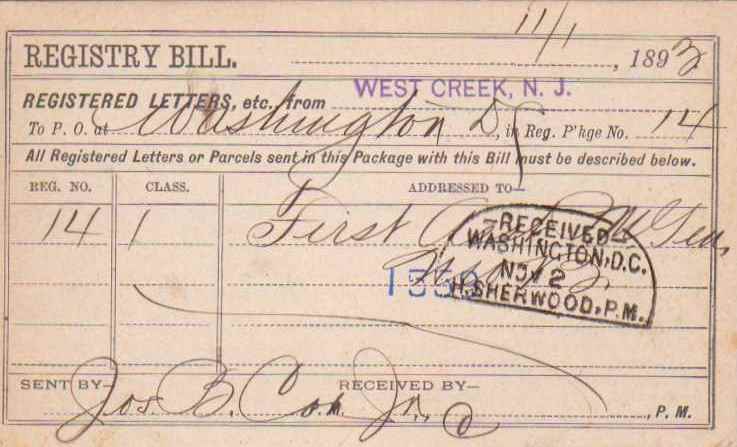 11/1
REGISTRY BILL. , 1893
WEST CREEK, N. J.
REGISTERED LETTERS, etc., from
To P. O. at Washington D C, in Reg. P'kge No. 14
All Registered Letters or Parcels sent in this Package with this Bill must be described below.
REG. NO. CLASS. ADDRESSED TO—
14 1 First Gen,
—RECEIVED—
WASHINGTON, D.C.
NOV 2
H. SHERWOOD, P.M.
SENT BY— RECEIVED BY—
Jos. B. Cox Jr., , P. M.